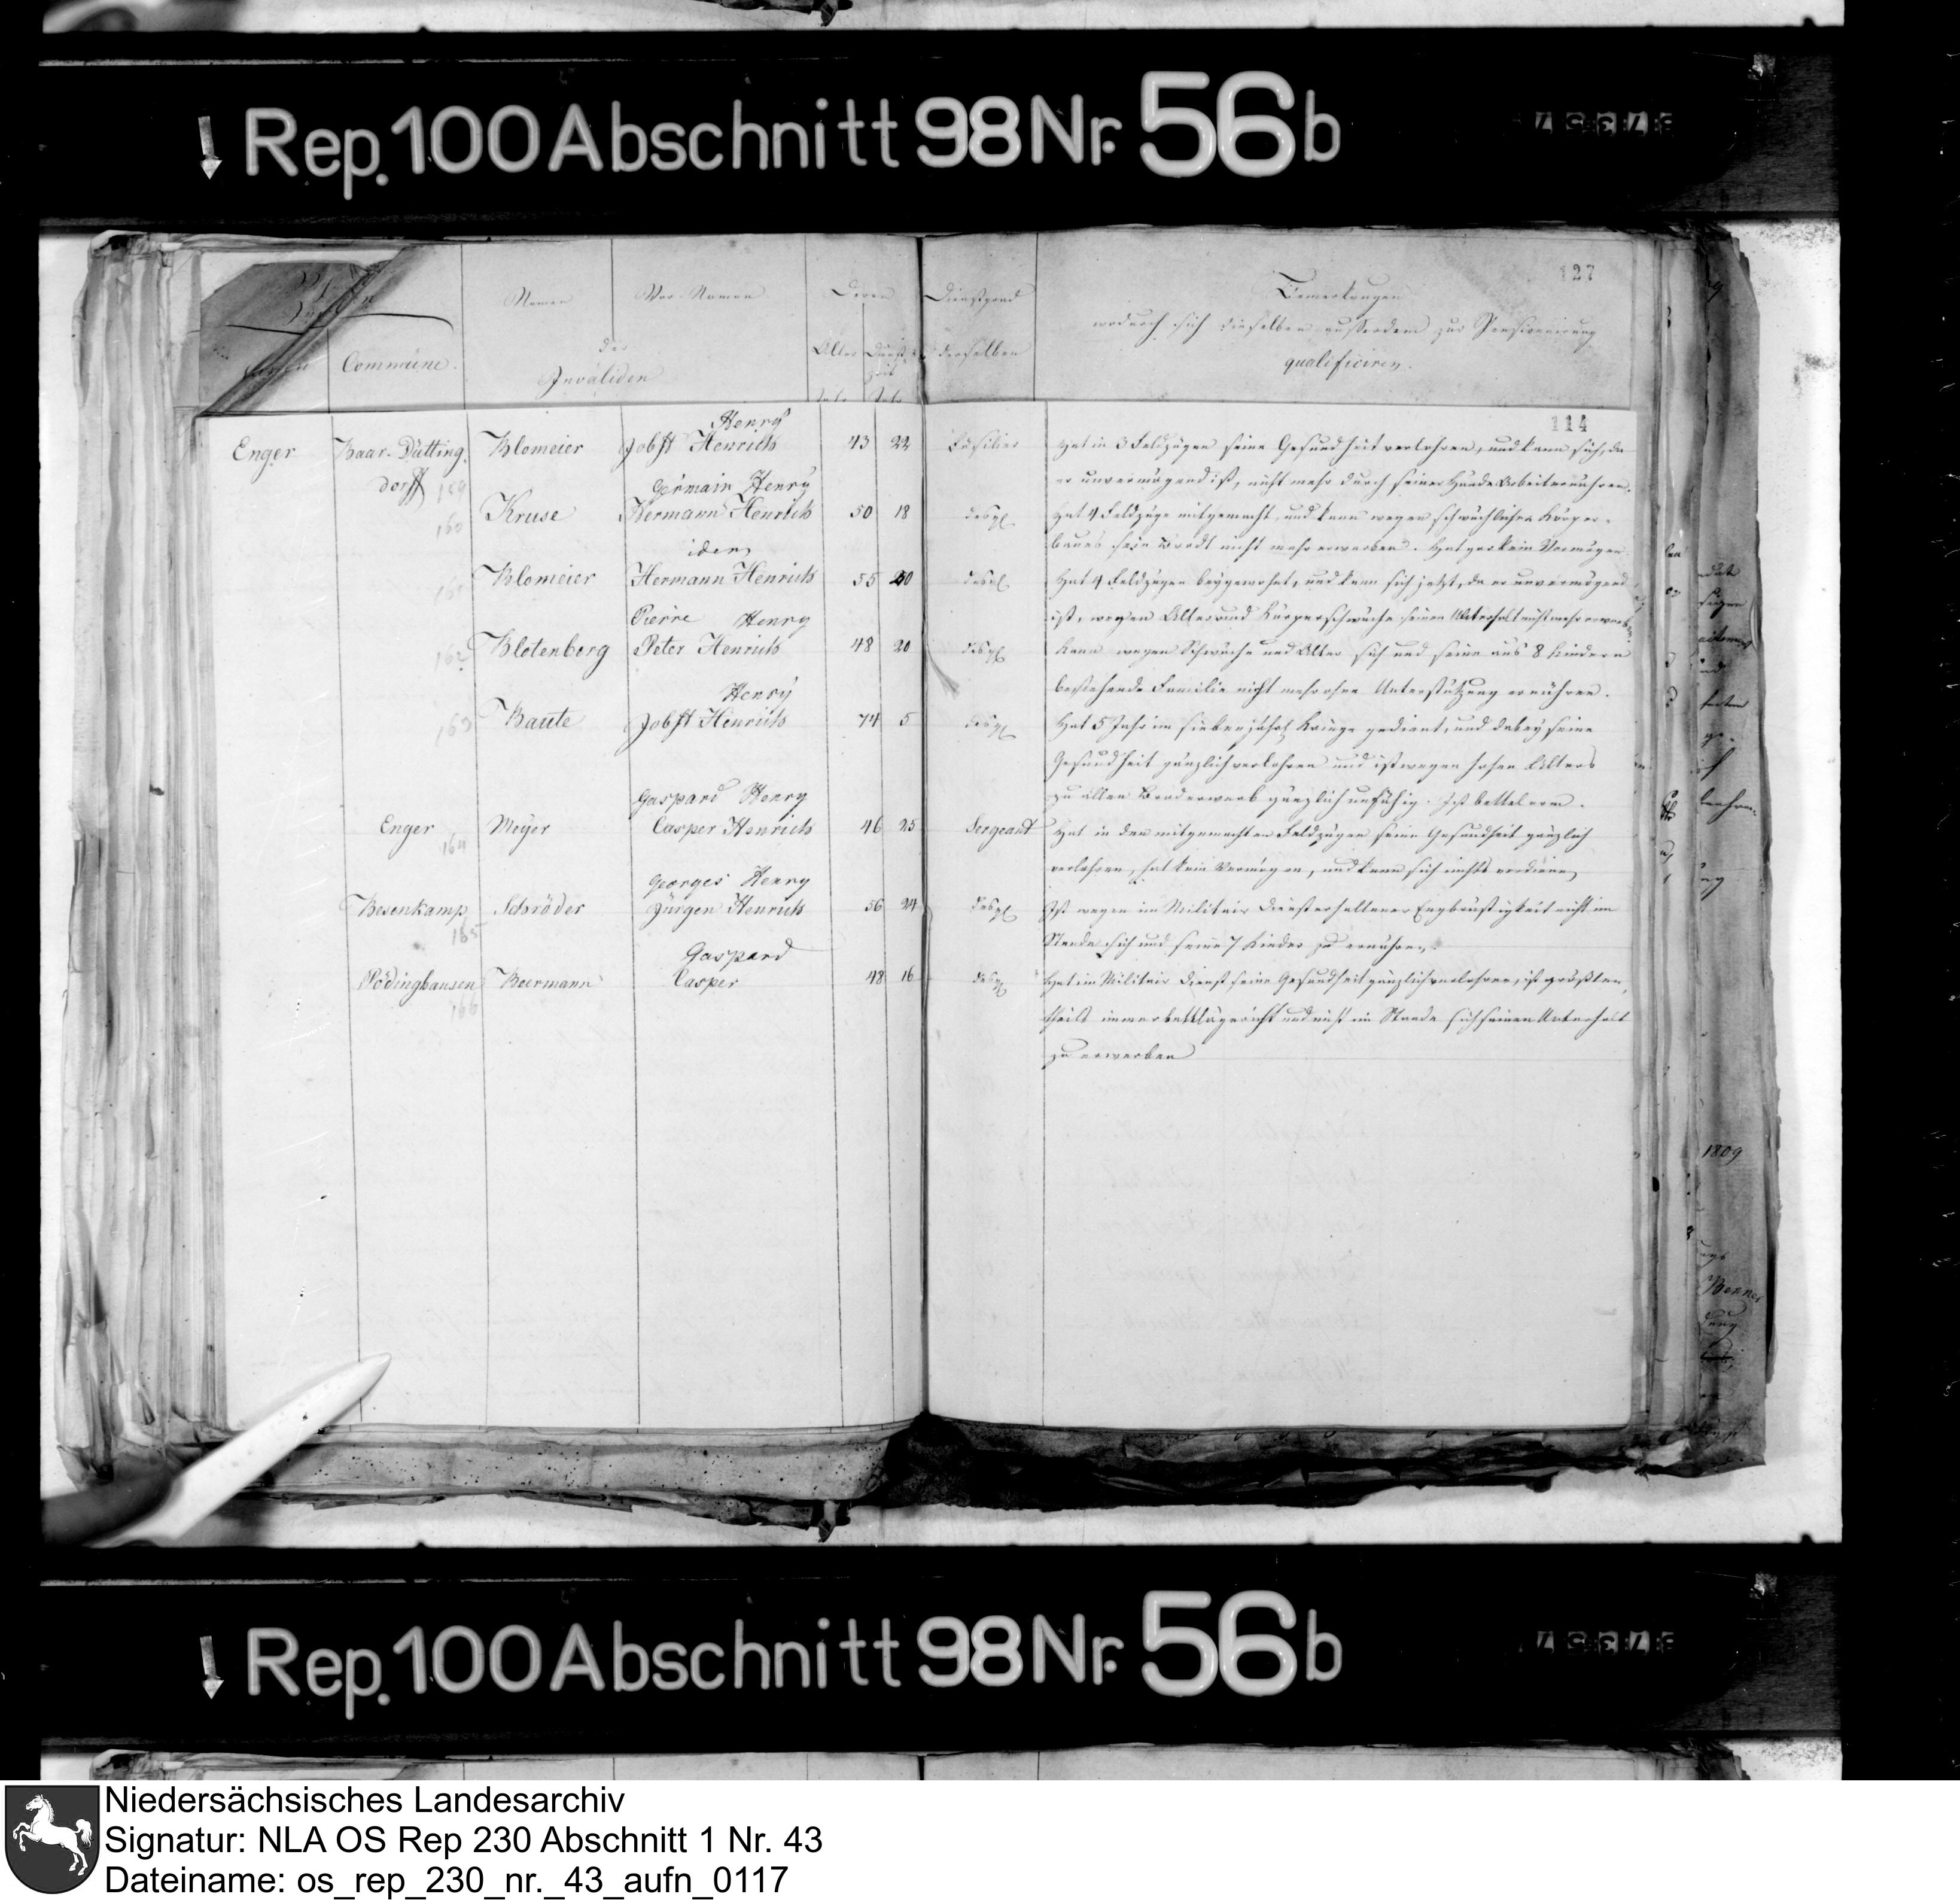 Rep. 100 Abschnitt 98 Nr. 56b
127
Namen
Vor-Namen
Deren
Dienstgrad
Bemerkungen
wodurch sich dieselben ausserdem zur Pensionirung
Commüne.
der
Alter
Dienst
derselben
Invaliden
zeit
qualificiren.
114
Henry
Enger Baar-Dütting, Klomeier Jobst Henrich 43 22 Füsilier Hat in 3 Feldzügen seine Gesundheit verlohren, und kann sich, da
dorff 159 er unvermögend ist, nicht mehr durch seiner Hände Arbeit ernähren.
Germain Henry
160 Kruse Hermann Henrich 50 18 desgl. Hat 4 Feldzüge mitgemacht, und kann wegen schwächlichen Körper-
baues sein Brodt nicht mehr erwerben. Hat gar kein Vermögen.
idem
161 Klomeier Hermann Henrich 55 20 desgl. Hat 4 Feldzügen beygewohnt, und kann sich jetzt, da er unvermögend
ist, wegen Alter und Körperschwäche seinen Unterhalt nicht mehr erwerben.
Pierre Henry
162 Klotenberg Peter Henrich 48 20 desgl. Kann wegen Schwäche und Alter sich und seine aus 8 Kindern
bestehende Familie nicht mehr ohne Unterstützung ernähren.
Henry
163 Baute Jobst Henrich 74 5 desgl. Hat 5 Jahr im siebenjähr. Kriege gedient, und dabey seine
Gesundheit gänzlich verlohren und ist wegen hohen Alters
zu allen Broderwerb gänzlich unfähig. Ist bettelarm.
Gaspard Henry
Enger 164 Meyer Casper Henrich 46 25 Sergeant Hat in den mitgemachten Feldzügen seine Gesundheit gänzlich
verlohren, hat kein Vermögen, und kann sich nichts verdienen
Georges Henry
Besenkamp 165 Schröder Jürgen Henrich 56 24 desgl. Ist wegen im Militair Dienst erhaltener Engbrüstigkeit nicht im
Stande sich und seine 7 Kinder zu ernähren.
Gaspard
Pödinghausen 166 Beermann Casper 48 16 desgl. Hat im Militair Dienst seine Gesundheit gänzlich verlohren, ist größten
theils immer bettlägericht und nicht im Stande sich seinen Unterhalt
zu erwerben
1809
Rep. 100 Abschnitt 98 Nr. 56b
Niedersächsisches Landesarchiv
Signatur: NLA OS Rep 230 Abschnitt 1 Nr. 43
Dateiname: os_rep_230_nr._43_aufn_0117